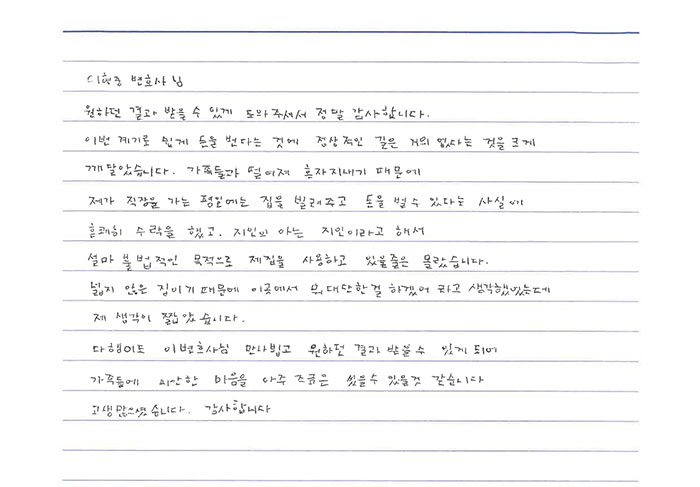 이현중 변호사님
원하던 결과 받을 수 있게 도와주셔서 정말 감사합니다.
이번 계기로 쉽게 돈을 번다는 것에 정상적인 길은 거의 없다는 것을 크게
깨달았습니다. 가족들과 떨어져 혼자지내기 때문에
제가 직장을 가는 평일에는 집을 빌려주고 돈을 벌 수 있다는 사실에
흔쾌히 수락을 했고. 지인의 아는 지인이라고 해서
설마 불법적인 목적으로 제집을 사용하고 있을줄은 몰랐습니다.
넓지 않은 집이기 때문에 이곳에서 뭐 대단한걸 하겠어 라고 생각했었는데
제 생각이 짧았습니다.
다행이도 이변호사님 만나뵙고 원하던 결과 받을 수 있게 되어
가족들에 미안한 마음을 아주 조금은 씻을수 있을것 같습니다
고생많으셨습니다. 감사합니다